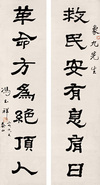 象九先生
救民安有息肩日
革命方為絕頂人
馮玉祥